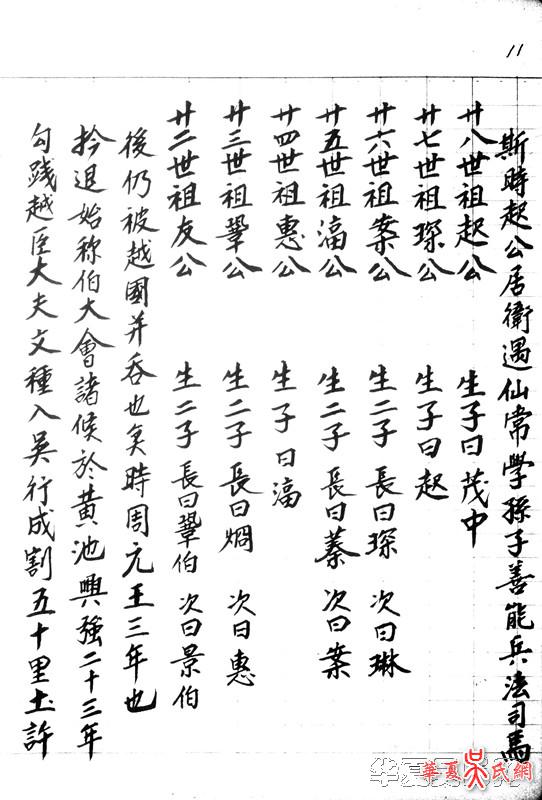 11
勾踐越臣大夫文種入吳行成割五十里土許
扲退始称伯大會諸候於黃池興強二十三年
後仍被越國并吞也矣時周元王三年也
廿二世祖友公 生二子 長曰鞏伯 次曰景伯
廿三世祖鞏公 生二子 長曰焵 次曰惠
廿四世祖惠公 生子曰湢
廿五世祖湢公 生二子 長曰蓁 次曰案
廿六世祖案公 生二子 長曰琛 次曰琳
廿七世祖琛公 生子曰起
廿八世祖起公 生子曰茂中
斯時起公居衛遇仙常學孫子善能兵法司馬
華夏吳氏網